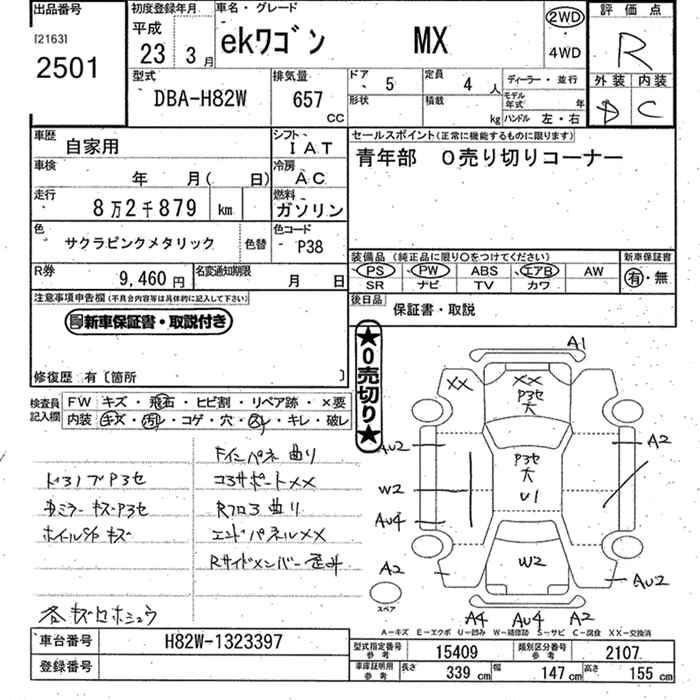 出品番号 初度登録年月 車名・グレード 評価点
[2163]
2501
平成
23 3月
ekワゴン MX
2WD
・
4WD
R
外装 内装
D C
型式 排気量 ドア 5 定員 4人 ディーラー・並行
DBA-H82W 657 CC
形状 積載 kg モデル年式 年
ハンドル 左・右
車歴 自家用 シフト IAT
セールスポイント(正常に機能するものに限ります)
青年部 0売り切りコーナー
車検 年 月( 日) 冷房 AC
走行 8万2千879 km 燃料 ガソリン
色 サクラピンクメタリック 色替 色コード P38
装備品 (純正品に限り○をつけてください) 新車保証書
PS PW ABS エアB AW 有・無
SR ナビ TV カワ
R券 9,460円 名変通知期限 月 日
後日品 保証書・取説
注意事項申告欄(不具合内容等は具体的に記入して下さい)
新車保証書・取説付き
★0売切り★
修復歴 有〔箇所 〕
検査員記入欄 FW キズ・飛石・ヒビ割・リペア跡・×要
内装 キズ・汚レ・コゲ・穴・スレ・キレ・破レ
Fインパネ曲り
ドアノブP3セ コアサポートXX
ミラーキズP3セ Rフロア曲り
ホイルS/Pキズ エンドパネルXX
Rサイドメンバー歪み
各キズセホシュウ
A1
XX XX
P3セ
大
AU2 A2
P3セ
大
W2 U1
AU4
A2 W2 AU2
スペア
A4 AU4 A2
A-キズ E-エクボ U-凹み W-補修跡 S-サビ C-腐食 XX-交換済
車台番号 H82W-1323397
登録番号
型式指定番号 参考 15409 類別区分番号 参考 2107
車庫証明用 参考 長さ 339 cm 幅 147 cm 高さ 155 cm